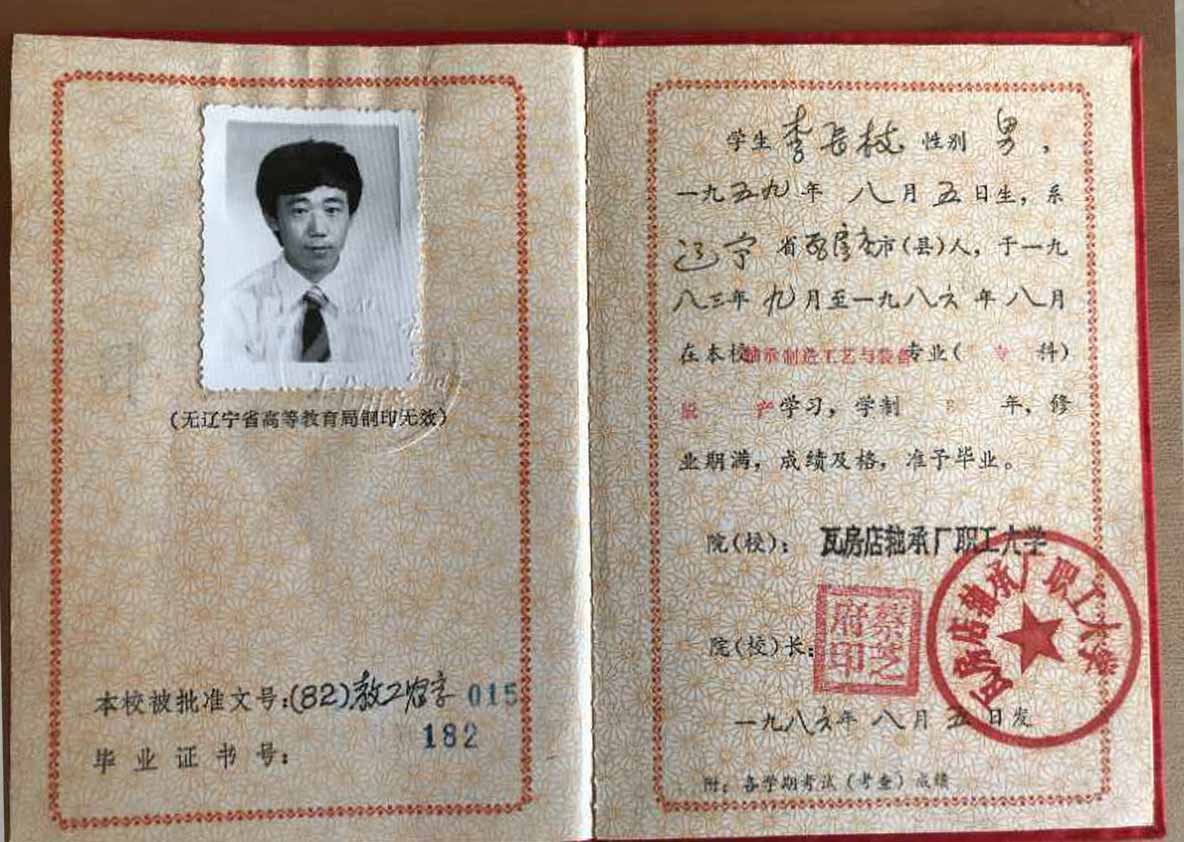 (无辽宁省高等教育局钢印无效)
本校被批准文号:(82)教工农字015
毕业证书号:
182
学生李长枝性别男,
一九五九年八月五日生,系
辽宁省瓦房店市(县)人,于一九
八三年九月至一九八六年八月
在本校轴承制造工艺与装备专业(专科)
脱产学习,学制年,修
业期满,成绩及格,准予毕业。
院(校):瓦房店轴承厂职工大学
院(校)长:
蔡芝府印
瓦房店轴承厂职工大学
一九八六年八月五日发
附:各学期考试(考查)成绩